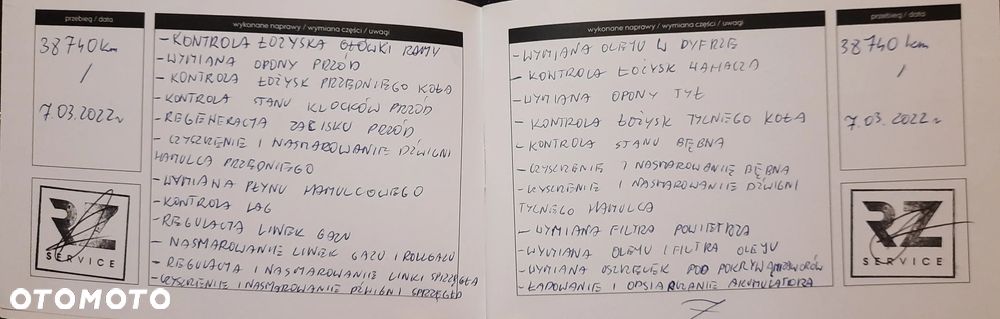 przebieg / data
38740km
/
7.03.2022r
RZ
SERVICE
wykonane naprawy / wymiana części / uwagi
- KONTROLA ŁOŻYSKA GŁÓWKI RAMY
- WYMIANA OPONY PRZÓD
- KONTROLA ŁOŻYSK PRZEDNIEGO KOŁA
- KONTROLA STANU KLOCKÓW PRZÓD
- REGENERACJA ZACISKU PRZÓD
- CZYSZCZENIE I NASMAROWANIE DŹWIGNI
HAMULCA PRZEDNIEGO
- WYMIANA PŁYNU HAMULCOWEGO
- KONTROLA LAG
- REGULACJA LINEK GAZU
- NASMAROWANIE LINEK GAZU I ROLLGAZU
- REGULACJA I NASMAROWANIE LINKI SPRZĘGŁA
- CZYSZCZENIE I NASMAROWANIE DŹWIGNI SPRZĘGŁO
wykonane naprawy / wymiana części / uwagi
- WYMIANA OLEJU W DYFRZE
- KONTROLA ŁOŻYSK WAHACZA
- WYMIANA OPONY TYŁ
- KONTROLA ŁOŻYSK TYLNEGO KOŁA
- KONTROLA STANU BĘBNA
- CZYSZCZENIE I NASMAROWANIE BĘBNA
- CZYSZCZENIE I NASMAROWANIE DŹWIGNI
TYLNEGO HAMULCA
- WYMIANA FILTRA POWIETRZA
- WYMIANA OLEJU I FILTRA OLEJU
- WYMIANA USZCZELEK POD POKRYWĄ ZAWORÓW
- ŁADOWANIE I ODSIARCZANIE AKUMULATORA
7
przebieg / data
38740 km
/
7.03.2022r
RZ
SERVICE
OTOMOTO